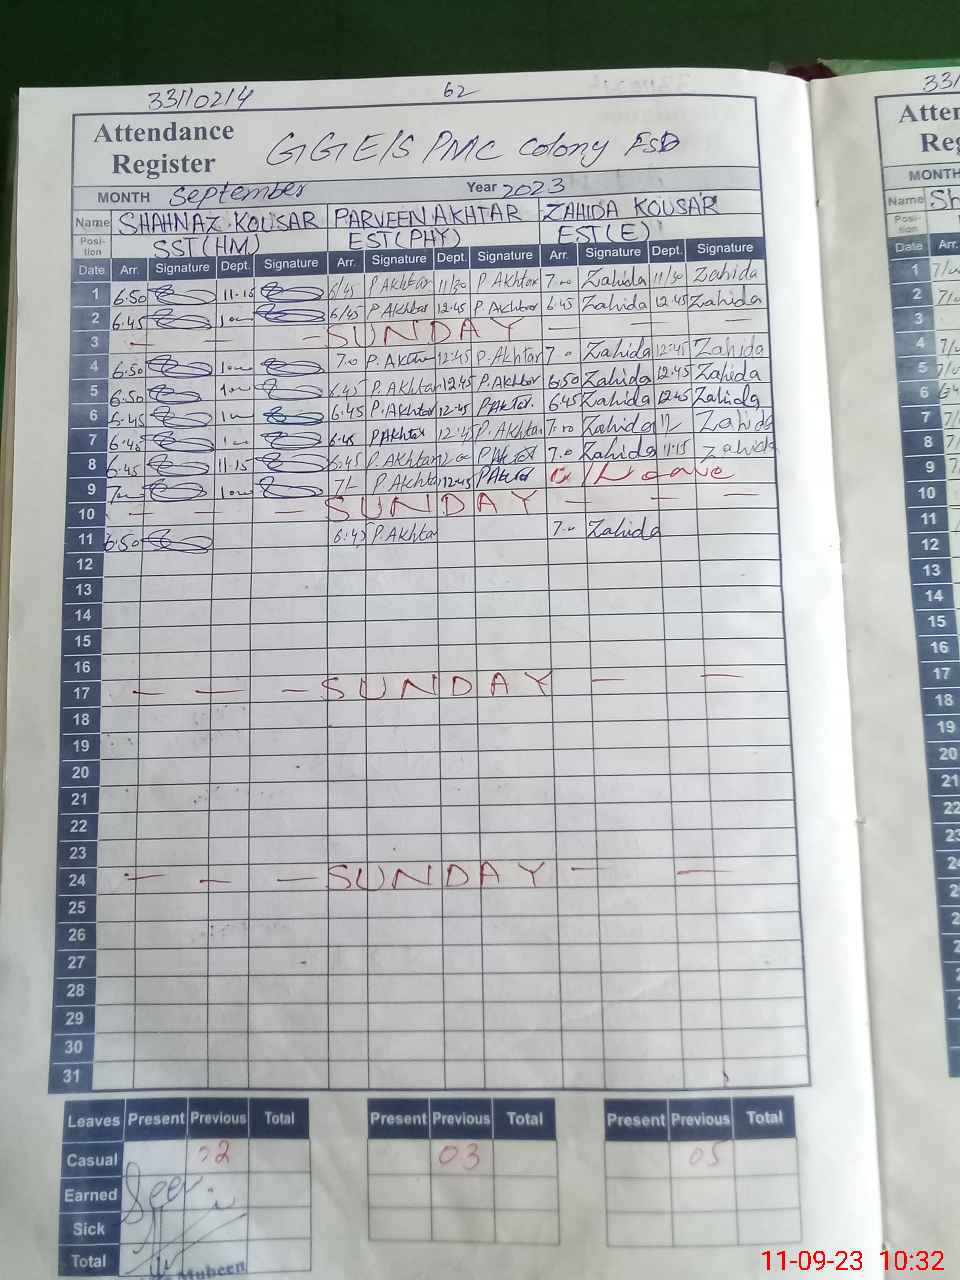 33110214 62 33
Attendance
Register
GGE/S PMC Colony FSD
MONTH September Year 2023
Name SHAHNAZ KOUSAR PARVEEN AKHTAR ZAHIDA KOUSAR
Position SST(HM) EST(PHY) EST(E)
Date Arr. Signature Dept. Signature Arr. Signature Dept. Signature Arr. Signature Dept. Signature
1 6.50 6/45 P.Akhtar 11/30 P.Akhtar 7.00 Zahida 11/30 Zahida
2 6.45 6/45 P.Akhtar 12.45 P.Akhtar 6.45 Zahida 12.45 Zahida
3 — — — SUNDAY — — —
4 6.50 7.0 P.Akhtar 12.45 P.Akhtar 7.0 Zahida 12.45 Zahida
5 6.50 6.45 P.Akhtar 12.45 P.Akhtar 6.50 Zahida 12.45 Zahida
6 6.45 6.45 P.Akhtar 12.45 P.Akhtar 6.45 Zahida 12.45 Zahida
7 6.45 6.45 P.Akhtar 12.45 P.Akhtar 7.00 Zahida 12 Zahida
8 6.45 11.15 6.45 P.Akhtar P.Akhtar 7.0 Zahida 11.15 Zahida
9 P.Akhtar 12.45 P.Akhtar Leave
10 — — — SUNDAY — — —
11 6.50 6.45 P.Akhtar 7.00 Zahida
12
13
14
15
16
17 — — — SUNDAY — —
18
19
20
21
22
23
24 — — — SUNDAY — —
25
26
27
28
29
30
31
Leaves Present Previous Total Present Previous Total Present Previous Total
Casual 02 03 05
Earned
Sick
Total
Mubeen
11-09-23 10:32